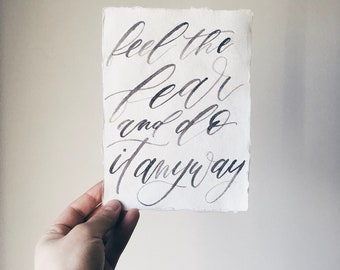 feel the
fear
and do
it anyway